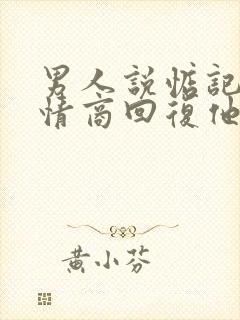 男人說惦記
情商回復他
黄小芬